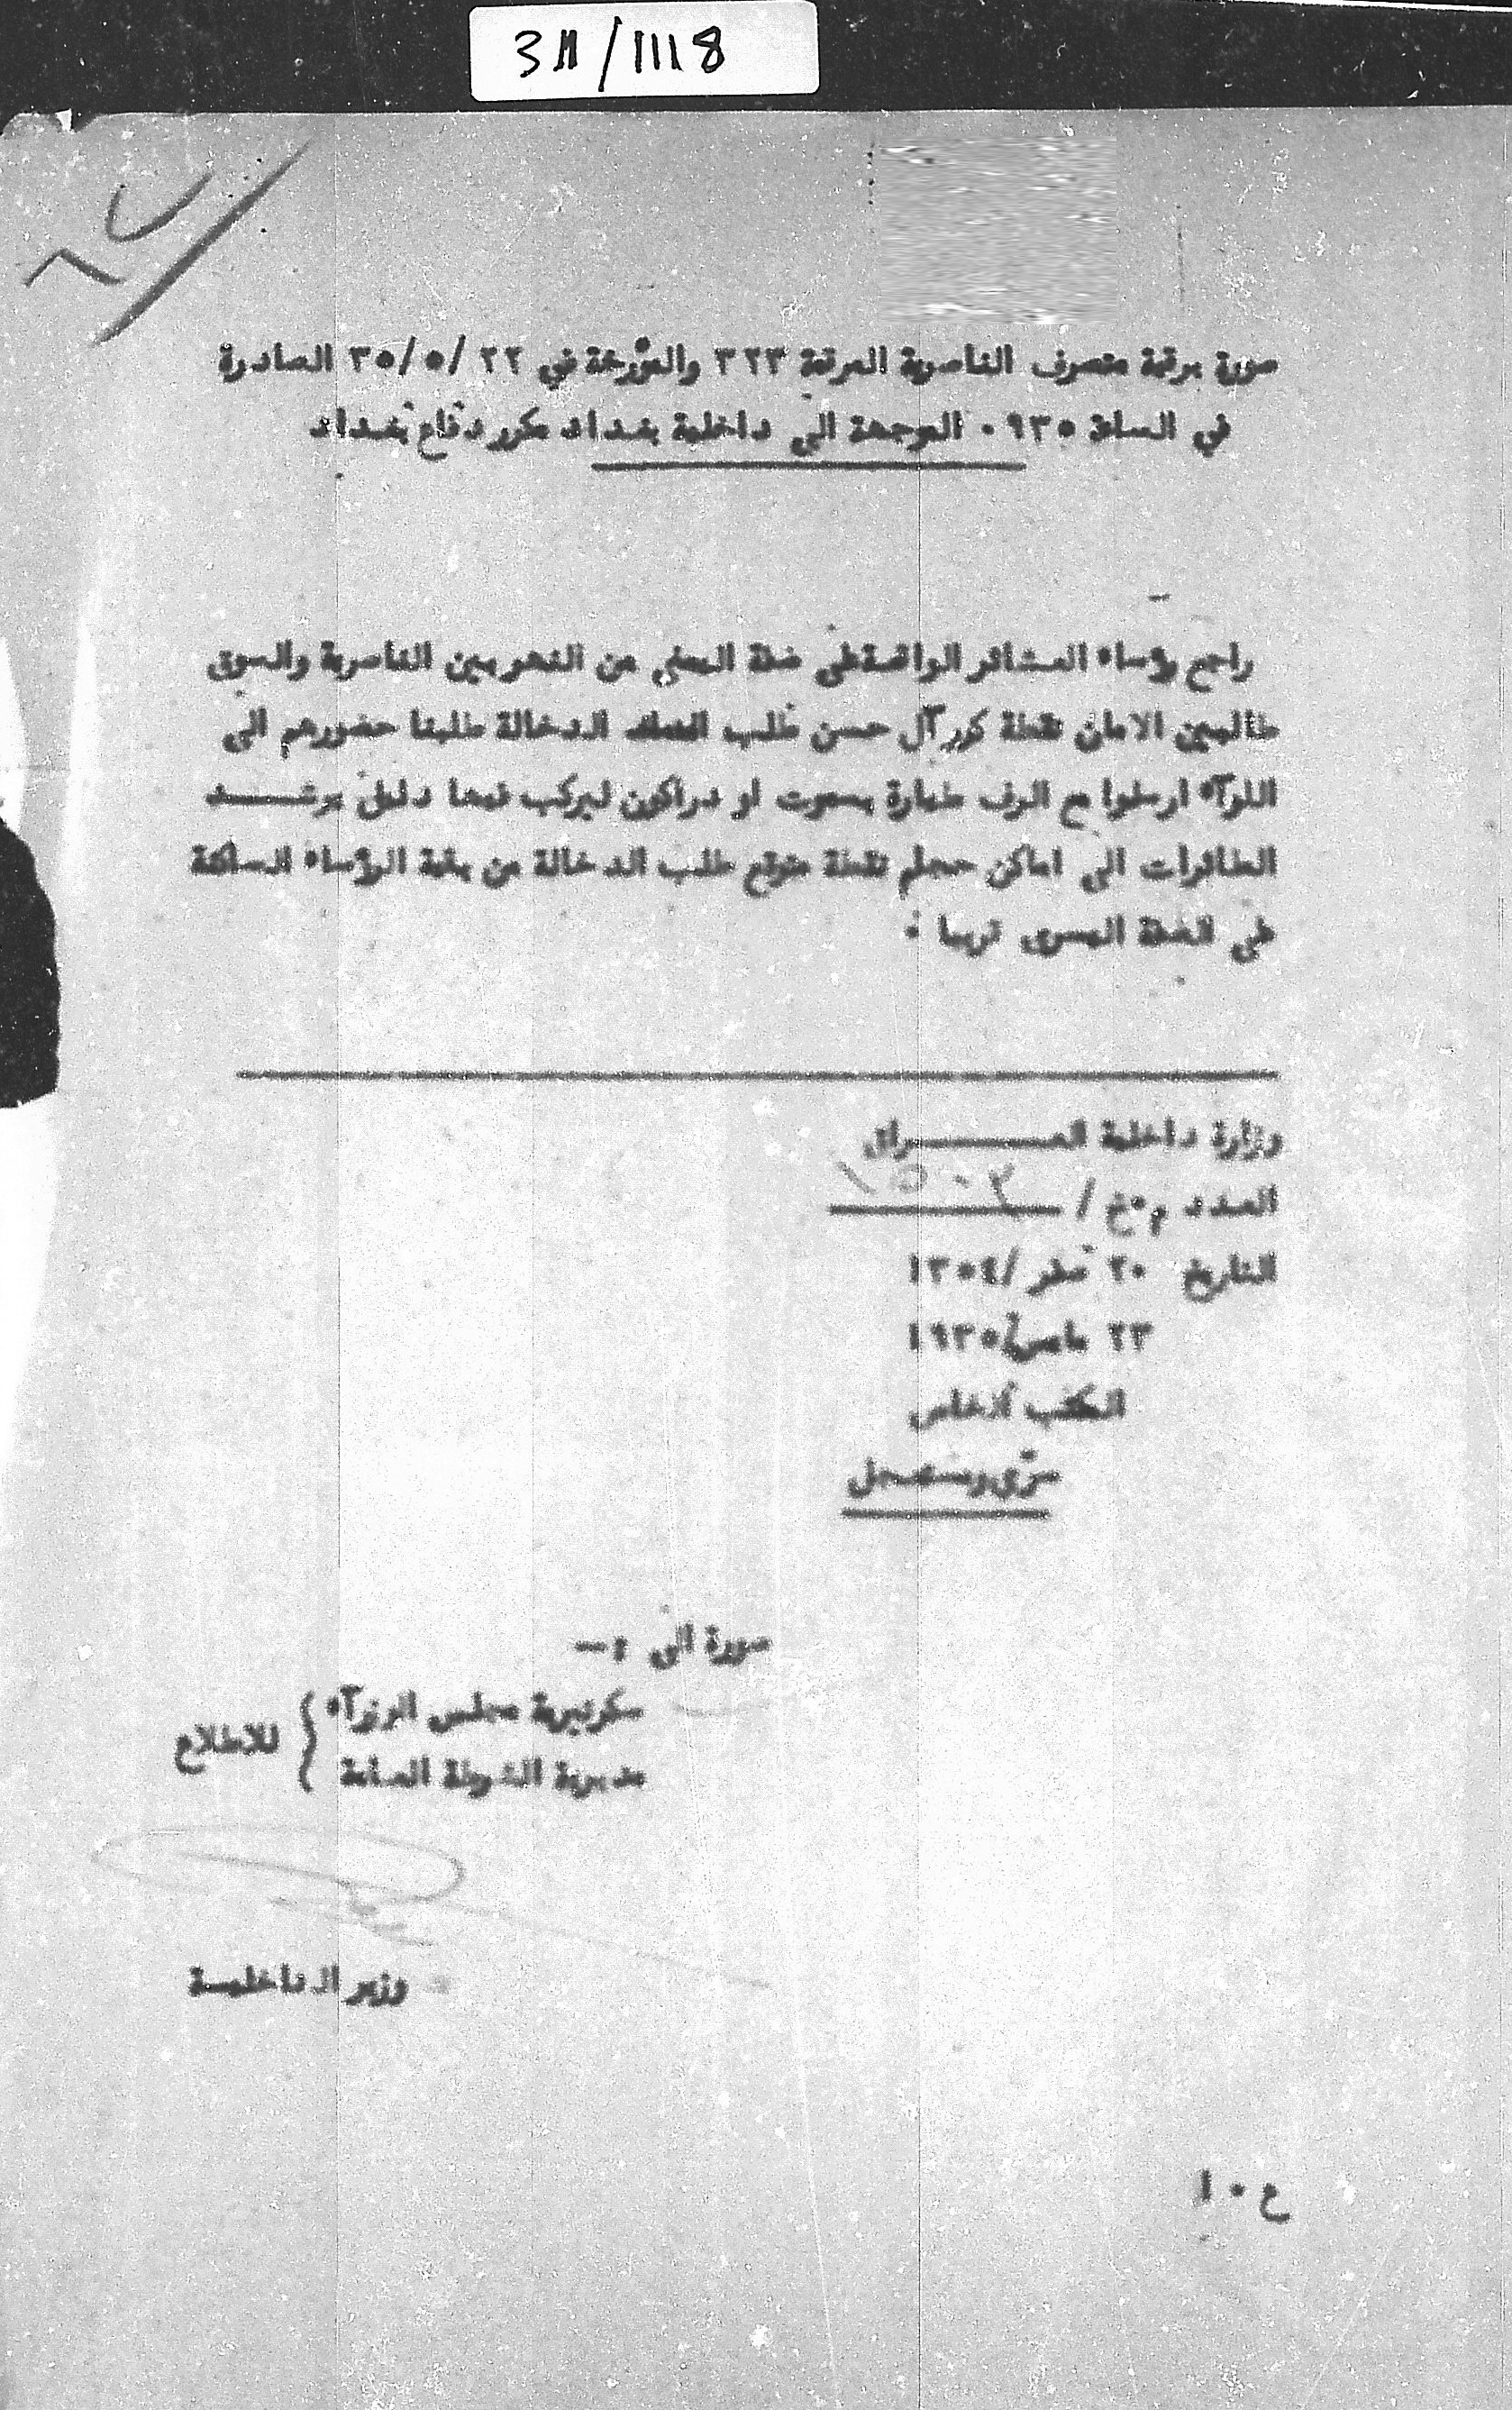 3M/1118
صورة برقية متصرف الناصرية المرقمة ٣٢٣ والمؤرخة في ٢٢/٥/٣٥ الصادرة
في الساعة ٠٩٣٥ الموجهة الى داخلية بغداد مكرر دفاع بغداد
راجع رؤساء العشائر الواقعة على ضفة اليمنى من النهر بين الناصرية والسوق
طالبين الامان نقطة كور آل حسن طلب الدخالة طلبنا حضورهم الى
اللوآء ارسلوا مع الرف طيارة بسموت او دراكون ليركب فيها دليل يرشد
الطائرات الى اماكن حجلم نقطة متوقع طلب الدخالة من بقية الرؤساء الساكنة
على الضفة اليسرى قريبا .
وزارة داخلية العراق
العدد م.خ / ١٥٠٣
التاريخ ٢٠ صفر/١٣٥٤
٢٣ مايس/١٩٣٥
المكتب الخاص
سرّي ومستعجل
صورة الى :-
سكرتيرية مجلس الوزرآء
مديرية الشرطة العامة } للاطلاع
وزير الداخلية
ع.١